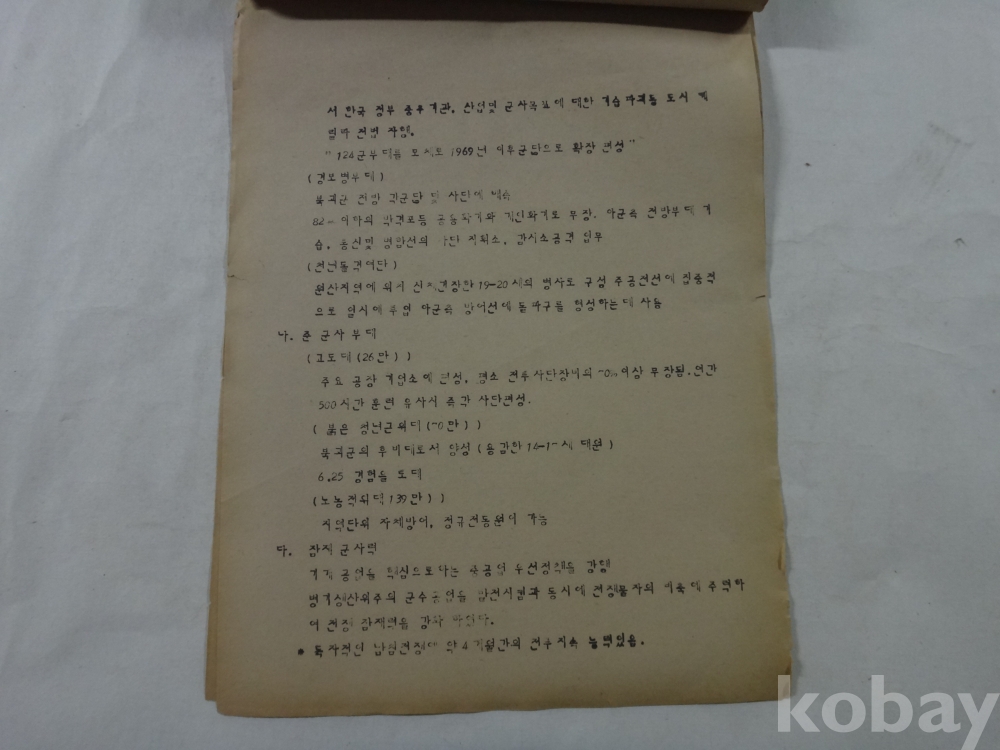 서 한국 정부 중우기관, 산업및 군사목표에 대한 기습파괴등 도시 게
릴라 전법 자행.
"124군부대를 모체로 1969년 이후군단으로 확장 편성"
(경보병부대)
북괴군 전방 각군단 및 사단에 배속
82 이하의 박격포등 공용화기와 개인화기로 무장. 아군측 전방부대 기
습, 통신및 병참선의 차단 지휘소, 감시소공격 임무
(전년돌격여단)
원산지역에 위치 신체건장한 19-20세의 병사로 구성 주공전선에 집중적
으로 일시에 투입 아군측 방어선에 돌파구를 형성하는데 사용
나. 준 군사부대
(교도대(26만))
주요 공장 기업소에 편성, 평소 전투사단장비의 이상 무장됨. 연간
500시간 훈련 유사시 즉각 사단편성.
(붉은 청년근위대(만))
북괴군의 후비대로서 양성(용감한 대원)
6.25 경험을 토대
(노농적위대139만))
지역단위 자체방어, 정규전동원이 가능
다. 잠재 군사력
기계 공업을 핵심으로하는 중공업 우선정책을 강행
병기생산위주의 군수공업을 발전시킴과 동시에 전쟁물자의 비축에 주력하
여 전쟁 잠재력을 강화 하였다.
• 독자적인 남침전쟁에 약4개월간의 전투지속 능력있음.
kobay